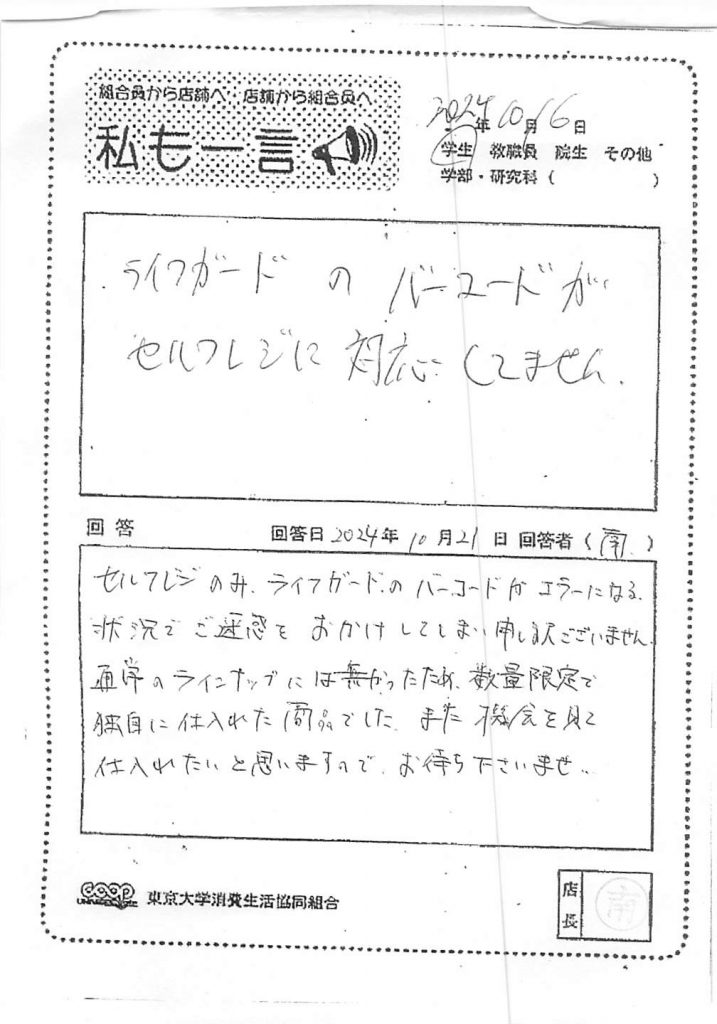 組合員から店舗へ 店舗から組合員へ
私も一言
2024年10月16日
学生 教職員 院生 その他
学部・研究科 ( )
ライフガード の バーコードが
セルフレジに 対応してません.
回答 回答日 2024年 10月21日 回答者 (南)
セルフレジのみ、ライフガードのバーコードがエラーになる
状況でご迷惑をおかけしてしまい申し訳ございません
通常のラインナップには無かったため、数量限定で
独自に仕入れた商品でした。また機会を見て
仕入れたいと思いますので、お待ち下さいませ。
coop 東京大学消費生活協同組合
店長 南